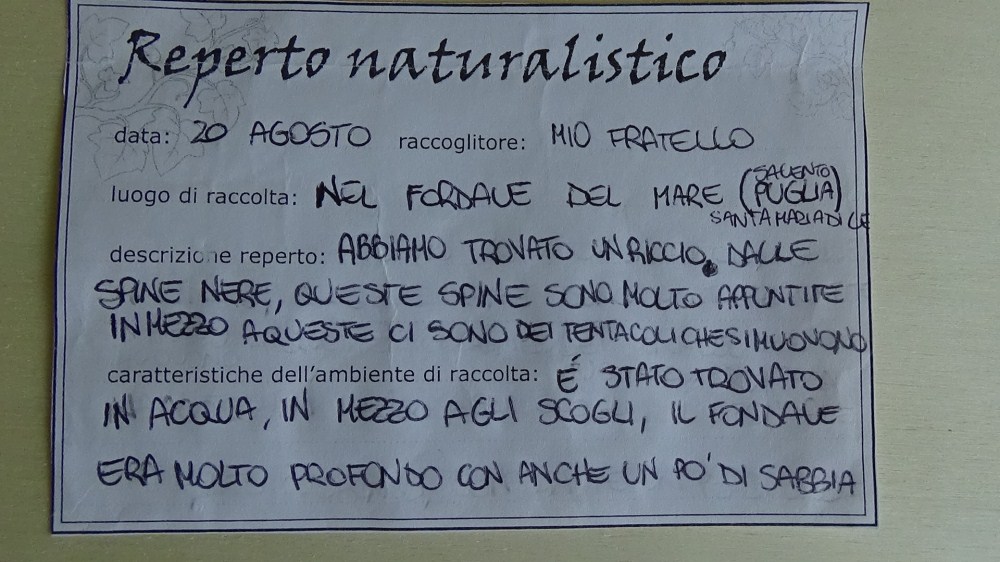 Reperto naturalistico
data: 20 AGOSTO raccoglitore: MIO FRATELLO
luogo di raccolta: NEL FORDALE DEL MARE (SALENTO PUGLIA)
SANTA MARIA DI LE
descrizione reperto: ABBIAMO TROVATO UN RICCIO, DALLE
SPINE NERE, QUESTE SPINE SONO MOLTO APPUNTITE
IN MEZZO A QUESTE CI SONO DEI TENTACOLI CHE SI MUOVONO
caratteristiche dell'ambiente di raccolta: É STATO TROVATO
IN ACQUA, IN MEZZO AGLI SCOGLI, IL FONDALE
ERA MOLTO PROFONDO CON ANCHE UN PO' DI SABBIA